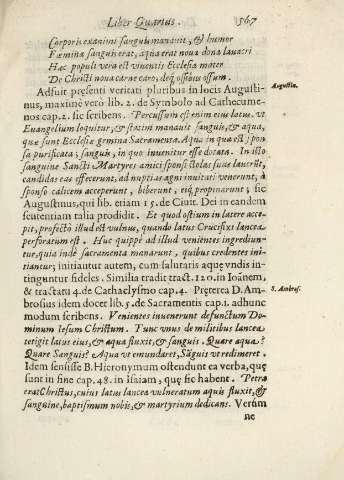 Liber Quartus. 567
Corporis exanimi sanguis manauit, & humor
Fœmina sanguis erat, aqua erat noua dona lauacri
Hæc populi vera est viuentis Ecclesia mater
De Christi noua carne caro, deq; ossibus ossum.
Adfuit presenti veritati pluribus in locis Augusti-
nus, maximè verò lib. 2. de Symbolo ad Cathecume-
nos cap. 2. sic scribens. Percussum est enim eius latus, vt
Euangelium loquitur, & statim manauit sanguis, & aqua,
quæ sunt Ecclesiæ gemina Sacramenta. Aqua in qua est spon
sa purificata; sanguis, in quo inuenitur esse dotata. In isto
sanguine Sancti Martyres amici sponsi stolas suas lauerũt,
candidas eas effecerunt, ad nuptias agni inuitati venerunt, à
sponso calicem acceperunt, biberunt, eiq; propinarunt; sic
Augustinus, qui lib. etiam 15. de Ciuit. Dei in eandem
sententiam talia prodidit. Et quod ostium in latere acce-
pit, profectò illud est vulnus, quando latus Crucifixi lancea
perforatum est. Hac quippè ad illud venientes ingrediun-
tur, quia inde sacramenta manarunt, quibus credentes ini-
tiantur; initiantur autem, cum salutaris aquę vndis in-
tinguntur fideles. Similia tradit tract. 120. in Ioãnem,
& tractatu 4. de Cathaclysmo cap. 4. Pręterea D. Am-
brosius idem docet lib. 5. de Sacramentis cap. 1. adhunc
modum scribens. Venientes inuenerunt defunctum Do-
minum Iesum Christum. Tunc vnus de militibus lancea
tetigit latus eius, & aqua fluxit, & sanguis. Quare aqua?
Quare Sanguis? Aqua vt emundaret, Sãguis vt redimeret.
Idem sensisse B. Hieronymum ostendunt ea verba, quę
sunt in fine cap. 48. in Isaiam, quę sic habent. Petra
erat Christus, cuius latus lancea vulneratum aquis fluxit, &
sanguine, baptismum nobis, & martyrium dedicans. Verùm
ne
Augustin.
S. Ambros.